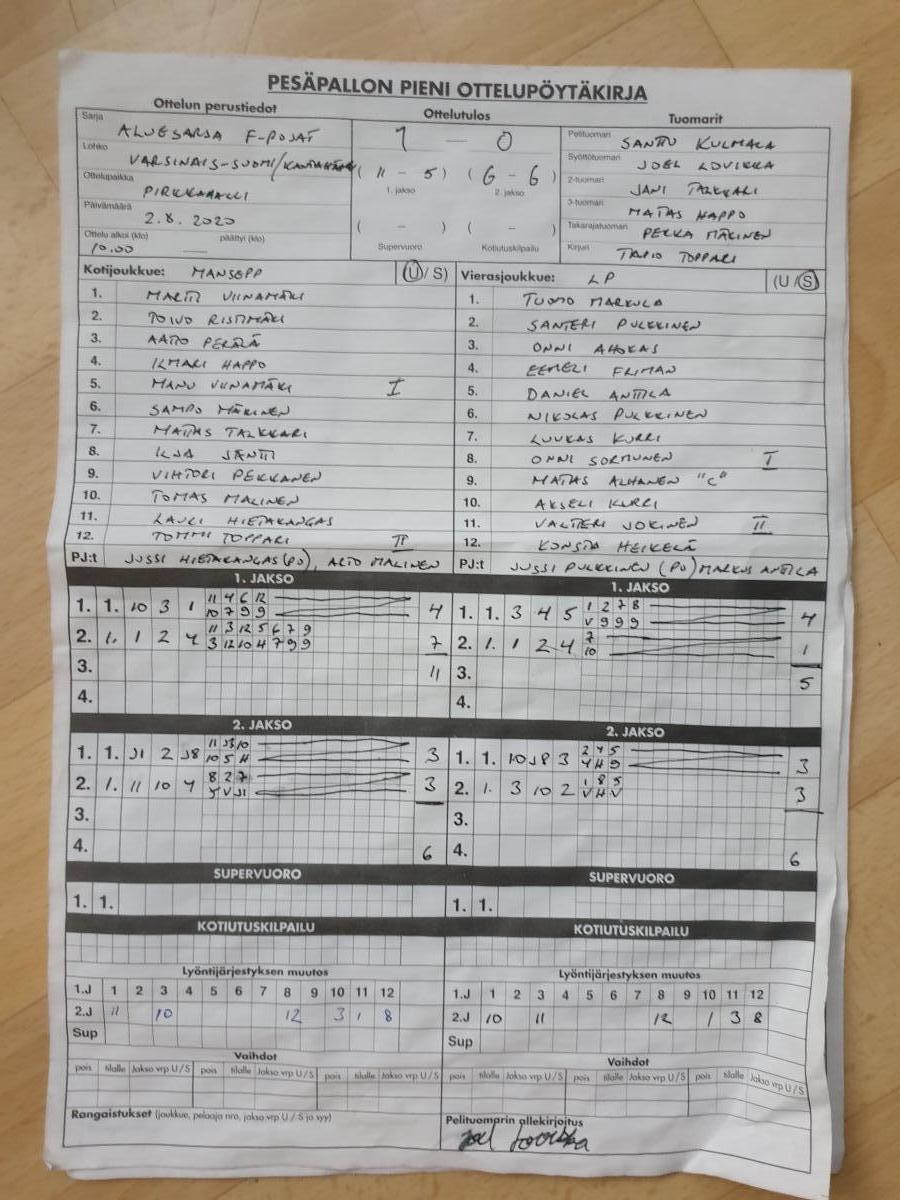 PESÄPALLON PIENI OTTELUPÖYTÄKIRJA
Ottelun perustiedot Ottelutulos Tuomarit
Sarja ALUESARJA F-POJAT
Lohko VARSINAIS-SUOMI/
Ottelupaikka PIRKKAHALLI
Päivämäärä 2.8.2020
Ottelu alkoi (klo) 10.00 päättyi (klo)
1 — 0
( 11 - 5 ) ( 6 - 6 )
1. jakso 2. jakso
( - ) ( - )
Supervuoro Kotiutuskilpailu
Pelituomari SANTTU KULMALA
Syöttötuomari JOEL LOVIKKA
2-tuomari JANI TALKKARI
3-tuomari MATIAS HAPPO
Takarajatuomari PEKKA MÄKINEN
Kirjuri TAPIO TOPPARI
Kotijoukkue: MANSEPP (U/S)
1. MARTTI VIINAMÄKI
2. TOIVO RISTIMÄKI
3. AATO PERÄLÄ
4. ILMARI HAPPO
5. MANU VIINAMÄKI I
6. SAMPO MÄKINEN
7. MATIAS TALKKARI
8. ILJA JÄNTTI
9. VIHTORI PEKKANEN
10. TOMAS MALINEN
11. LAURI HIETAKANGAS
12. TOMMI TOPPARI II
PJ:t JUSSI HIETAKANGAS (PJ), ARTO MALINEN
Vierasjoukkue: LP (U/S)
1. TUOMO MARKULA
2. SANTERI PULKKINEN
3. ONNI AHOKAS
4. EEMELI FRIMAN
5. DANIEL ANTTILA
6. NIKOLAS PULKKINEN
7. LUUKAS KURRI
8. ONNI SORMUNEN I
9. MATIAS ALHANEN "C"
10. AKSELI KURRI
11. VALTTERI JOKINEN II
12. KONSTA HEIKELÄ
PJ:t JUSSI PULKKINEN (PJ) MARKUS ANTTILA
1. JAKSO
1. 1. 10 3 1 11 4 6 12 4
10 7 9 9
2. 1. 1 2 4 11 3 12 5 6 7 9 7
3 12 10 4 7 9 9
3. 11
4.
1. JAKSO
1. 1. 3 4 5 1 2 7 8 4
V 9 9 9
2. 1. 1 2 4 7 1
10
3. 5
4.
2. JAKSO
1. 1. J1 2 J8 11 J3 10 3
10 5 H
2. 1. 11 10 4 8 2 7 3
V J1
3.
4. 6
2. JAKSO
1. 1. 10 J8 3 2 4 5 3
4 H 9
2. 1. 3 10 2 1 8 5 3
V H V
3.
4. 6
SUPERVUORO SUPERVUORO
1. 1. 1. 1.
KOTIUTUSKILPAILU KOTIUTUSKILPAILU
Lyöntijärjestyksen muutos Lyöntijärjestyksen muutos
1.J 1 2 3 4 5 6 7 8 9 10 11 12 1.J 1 2 3 4 5 6 7 8 9 10 11 12
2.J 11 10 12 3 1 8 2.J 10 11 12 1 3 8
Sup Sup
Vaihdot Vaihdot
pois tilalle Jakso vrp U/S pois tilalle Jakso vrp U/S pois tilalle Jakso vrp U/S pois tilalle Jakso vrp U/S pois tilalle Jakso vrp U/S pois tilalle Jakso vrp U/S
Rangaistukset (joukkue, pelaaja nro, jakso vrp U / S ja syy) Pelituomarin allekirjoitus